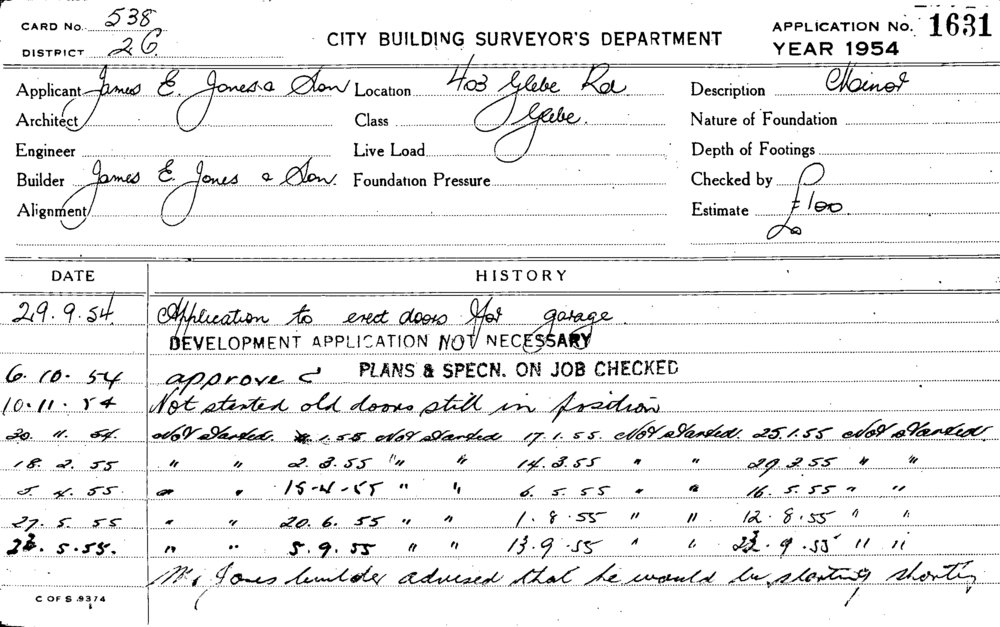 CARD No. 538
DISTRICT 26
CITY BUILDING SURVEYOR'S DEPARTMENT
APPLICATION No. 1631
YEAR 1954
Applicant James E. Jones & Son Location 403 Glebe Rd Description Minor
Architect Class Glebe. Nature of Foundation
Engineer Live Load Depth of Footings
Builder James E. Jones & Son. Foundation Pressure Checked by
Alignment Estimate £100
DATE HISTORY
29.9.54. Application to erect doors for garage.
DEVELOPMENT APPLICATION NOT NECESSARY
6.10.54 approved PLANS & SPECN. ON JOB CHECKED
10.11.54 Not started old doors still in position
30.11.54. Not Started. 1.55 Not Started 17.1.55. Not Started. 25.1.55 Not Started.
18.2.55 " " 2.3.55 " " 14.3.55 " " 29.3.55 " "
5.4.55. " " 15-4-55 " " 6.5.55 " " 16.5.55 " "
27.5.55 " " 20.6.55 " " 1.8.55 " " 12.8.55 " "
.5.55. " " 5.9.55 " " 13.9.55 " " 23.9.55 " "
Mr. Jones builder advised that he would be starting shortly
C OF S .9374